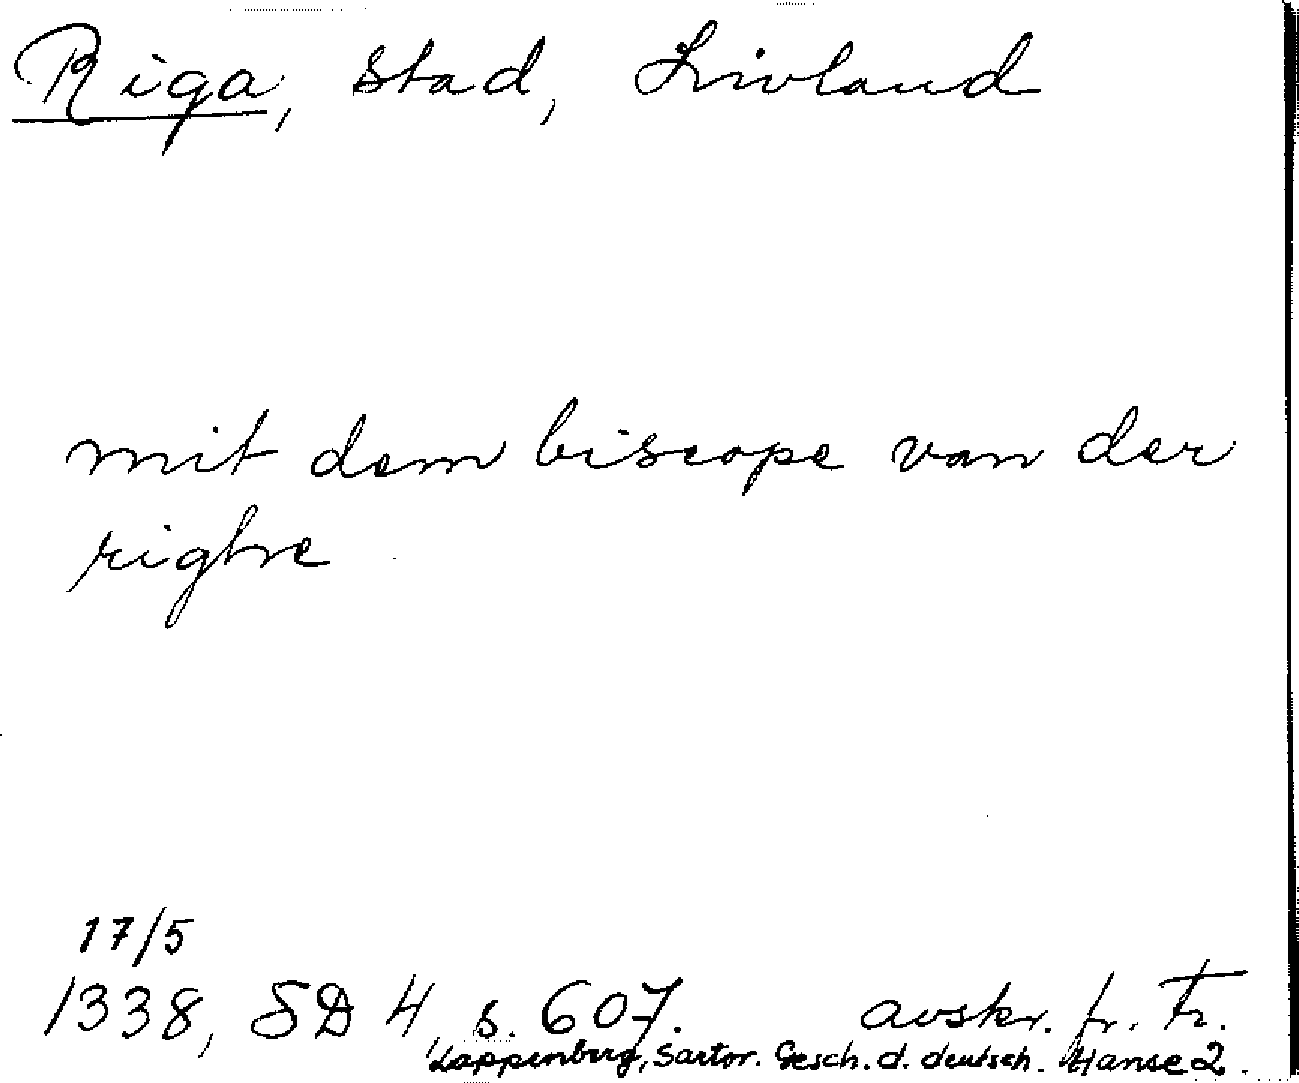 Riga, stad, Livland
mit dem biscope van der
righe
17/5
1338, SD 4, s. 607. avskr. fr. Tr.
Lappenberg, Sartor. Gesch. d. deutsch. Hanse 2.